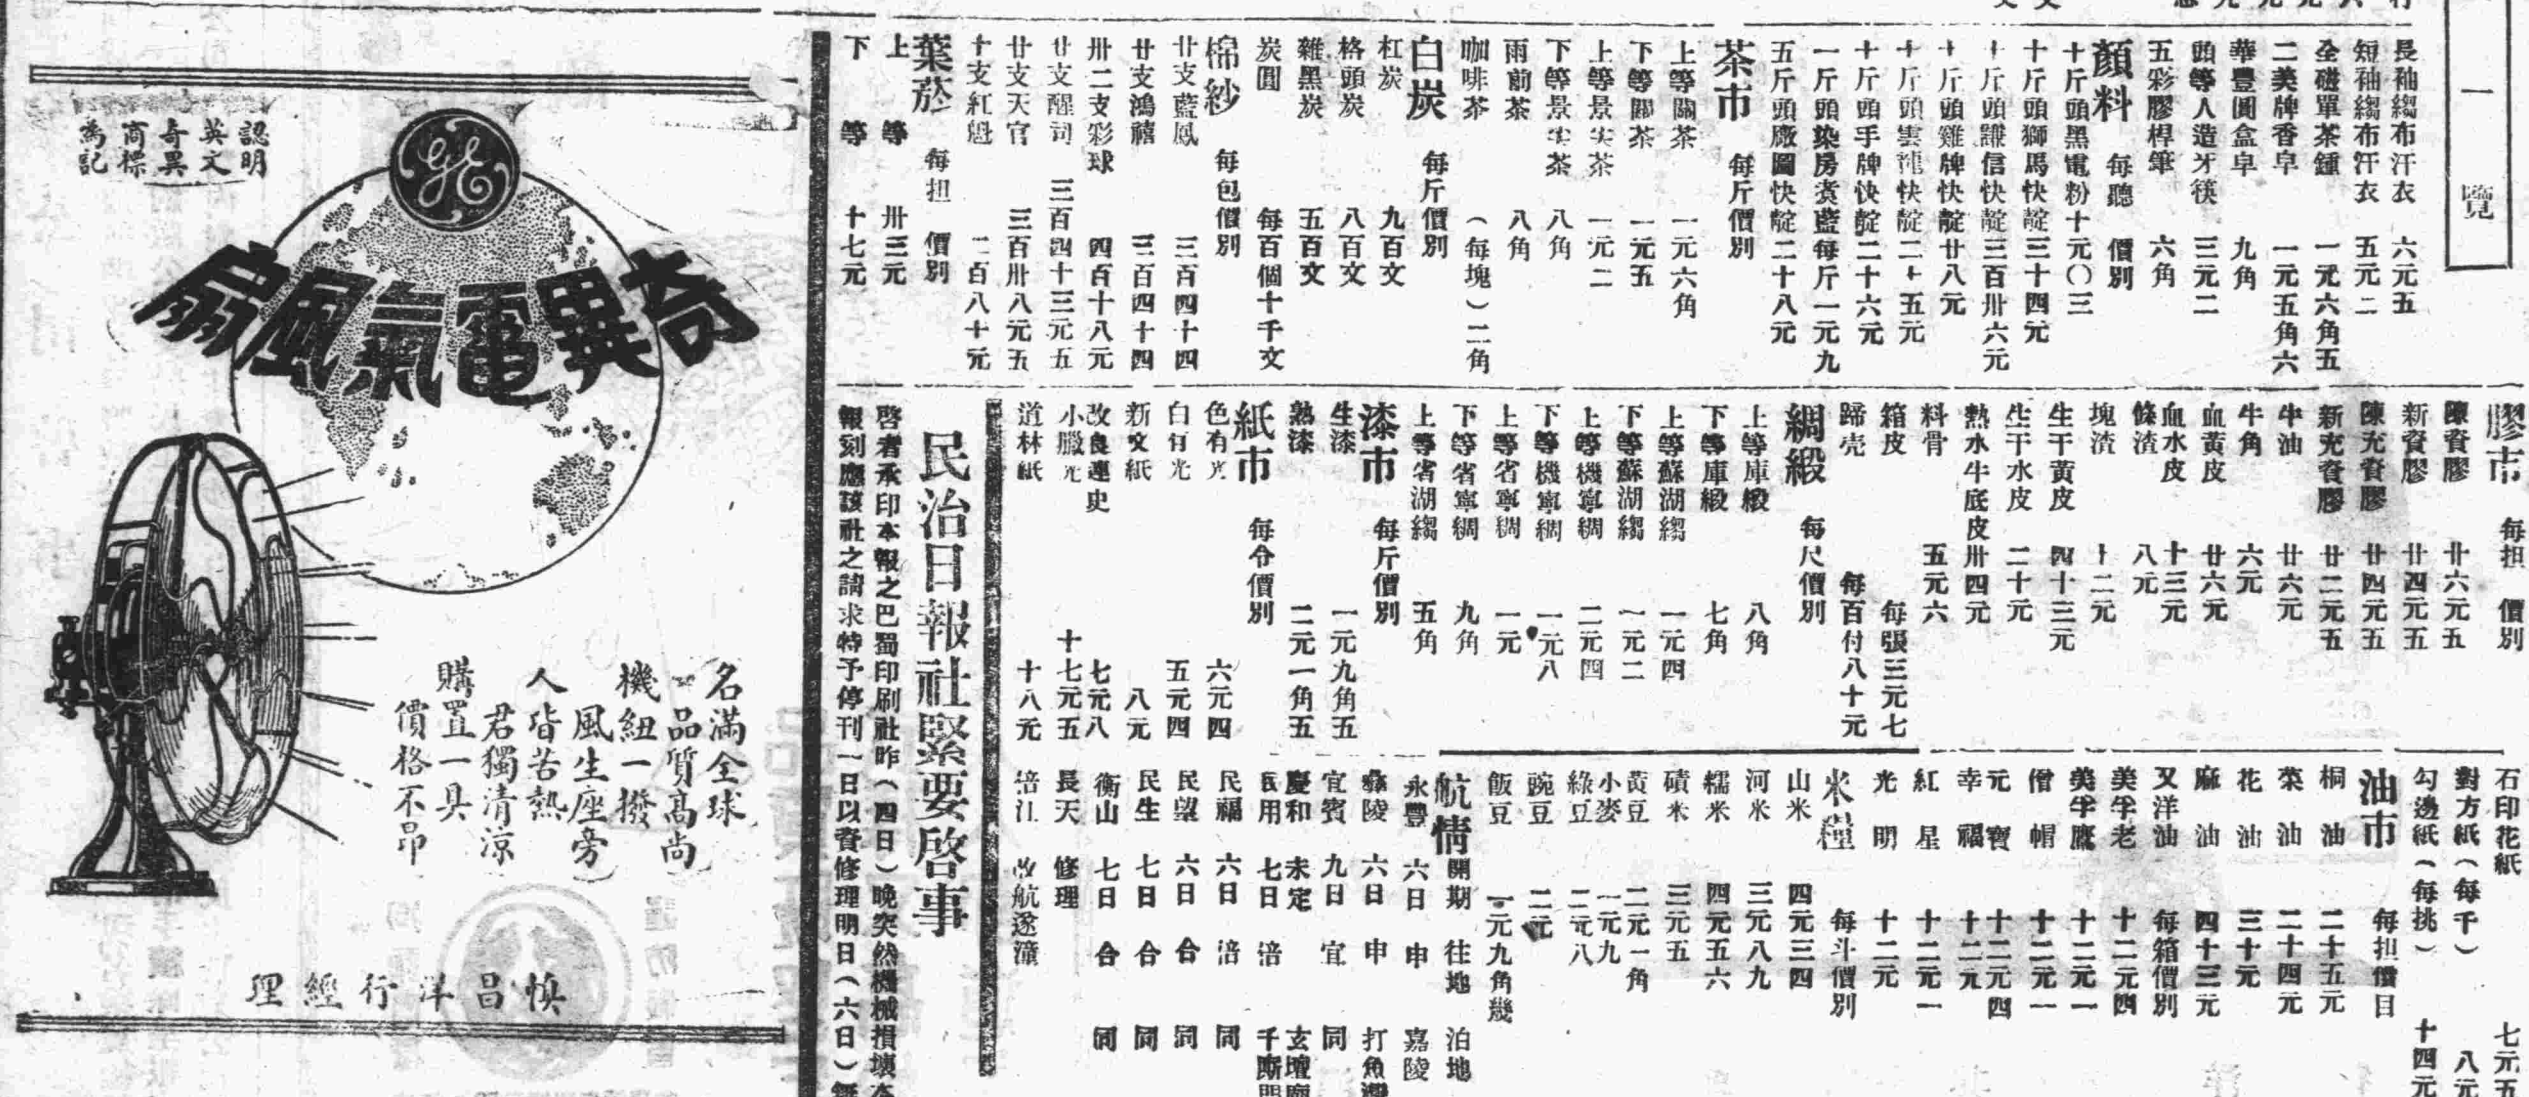 一覽
長袖縐布汗衣 六元五
短袖縐布汗衣 五元二
全磁單茶鍾 一元六角五
二美牌香皂 一元五角六
華豐圓盒皂 九角
頭等人造牙筷 三元二
五彩膠桿筆 六角
顏料 每聽 價別
十斤頭黑電粉十元〇三
十斤頭獅馬快靛三十四元
十斤頭謙信快靛三百卅六元
十斤頭雞牌快靛廿八元
十斤頭雲龍快靛二十五元
十斤頭手牌快靛二十六元
一斤頭染房煑藍每斤一元九
五斤頭廠圖快靛二十八元
茶市 每斤價別
上等關茶 一元六角
下等關茶 一元五
上等景尖茶 一元二
下等景尖茶 八角
雨前茶 八角
咖啡茶 （每塊）二角
白炭 每斤價別
杠炭 九百文
格頭炭 八百文
雜黑炭 五百文
炭圓 每百個十千文
棉紗 每包價別
廿支藍鳳 三百四十四
廿支鴻禧 三百四十四
卅二支彩球 四百十八元
廿支醒司 三百四十三元五
廿支天官 三百卅八元五
十支紅魁 二百八十元
葉菸 每担 價別
上等 卅三元
下等 十七元
膠市 每担 價別
陳資膠 廿六元五
新資膠 廿四元五
陳充資膠 廿四元五
新充資膠 廿二元五
牛油 廿六元
牛角 六元
血黃皮 廿六元
血水皮 十三元
條渣 八元
塊渣 十二元
生干黃皮 四十三元
生干水皮 二十元
熱水牛底皮卅四元
料骨 五元六
箱皮 每張三元七
蹄壳 每百付八十元
綢緞 每尺價別
上等庫緞 八角
下等庫緞 七角
上等蘇湖縐 一元四
下等蘇湖縐 一元二
上等機寧綢 二元四
下等機寧綢 一元八
上等省寧綢 一元
下等省寧綢 九角
上等省湖縐 五角
漆市 每斤價別
生漆 一元九角五
熟漆 二元一角五
紙市 每令價別
色有光 六元四
白有光 五元四
新文紙 八元
改良連史 七元八
小臘光 十七元五
道林紙 十八元
石印花紙 七元五
對方紙（每千） 八元
勾邊紙（每挑） 十四元
油市 每担價目
桐油 二十五元
菜油 二十四元
花油 三十元
麻油 四十三元
又洋油 每箱價別
美孚老 十二元四
美孚鷹 十二元一
僧帽 十二元一
元寶 十二元四
幸福 十二元
紅星 十二元一
光明 十二元
米糧 每斗價別
山米 四元三四
河米 三元八九
糯米 四元五六
磧米 三元五
黃豆 二元一角
小麥 一元九
綠豆 二元八
豌豆 二元
飯豆 一元九角幾
航情 開期 往地 泊地
永豐 六日 申 嘉陵
嘉陵 六日 申 打魚灣
宜賓 九日 宜 同
慶和 未定 玄壇廟
民用 七日 涪 千廝門
民福 六日 涪 同
民望 六日 合 同
民生 七日 合 同
衡山 七日 合 同
長天 修理
涪江 改航遂潼
民治日報社緊要啓事
啓者承印本報之巴蜀印刷社昨（四日）晚突然機械損壞本
報刻應該社之請求特予停刊一日以資修理明日（六日）
認明
英文
奇異
商標
為記
奇異電氣風扇
名滿全球
品質高尚
機紐一撥
風生座旁
人皆苦熱
君獨清涼
購置一具
價格不昂
慎昌洋行經理